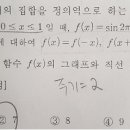 의 집합을 정의역으로 하는
0≤x≤1일 때, f(x)=sin2π
에 대하여 f(x)=f(-x), f(x+
함수 f(x)의 그래프와 직선
주기=2
② 7 ③ 8 ④ 9